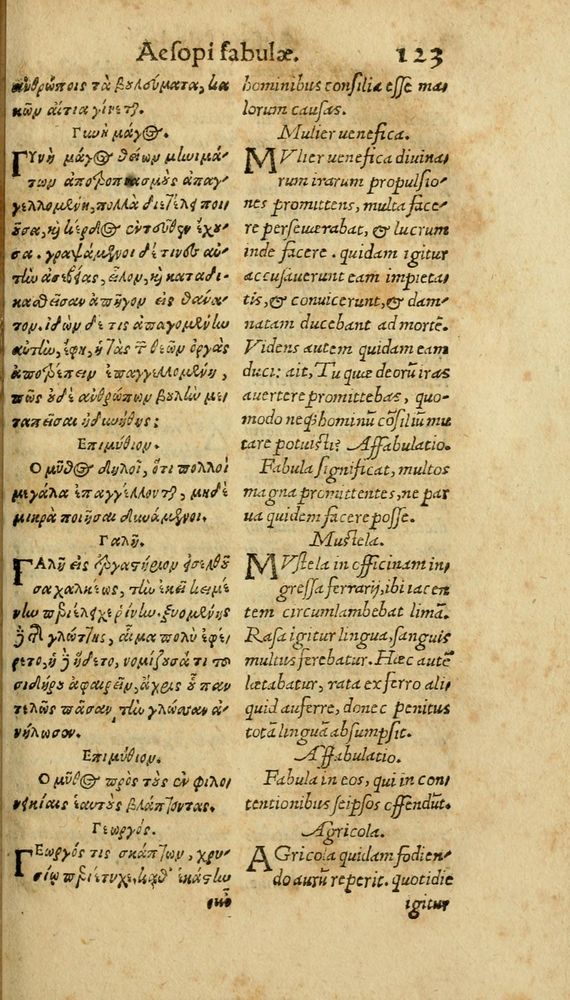 Aesopi fabulæ. 123
ἀνθρώποις τὰ βουλεύματα, κα
κῶν αἴτια γίνεται.
Γυνὴ μάγος.
ΓΥνὴ μάγος θείων μηνιμά-
των ἀποτροπιασμοὺς ἀπαγ-
γελλομένη, πολλὰ διετέλει ποι
οῦσα, καὶ κέρδος ἐντεῦθεν ἔχου-
σα. γραψάμενοι δέ τινες αὐ-
τὴν ἀσεβείας, εἷλον, καὶ καταδι-
κασθεῖσαν ἀπῆγον εἰς θάνα-
τον. ἰδὼν δέ τις ἀπαγομένην
αὐτὴν, ἔφη, ἡ τὰς τῶν θεῶν ὀργὰς
ἀποτρέπειν ἐπαγγελλομένη,
πῶς οὐδὲ ἀνθρώπων βουλὴν με-
ταπεῖσαι ἠδυνήθης;
Επιμύθιον.
Ο μῦθος δηλοῖ, ὅτι πολλοὶ
μεγάλα ἐπαγγέλλονται, μηδὲ
μικρὰ ποιῆσαι δυνάμενοι.
Γαλῆ.
ΓΑλῆ εἰς ἐργαστήριον εἰσελθοῦ
σα χαλκέως, τὴν ἐκεῖ κειμέ-
νην περιέλειχε ῥίνην. ξυομένης
δὲ τῆς γλώττης, αἷμα πολὺ ἐφέ-
ρετο, ἡ δὲ ἥδετο, νομίζουσά τι τοῦ
σιδήρου ἀφαιρεῖν, ἄχρις οὗ παν
τελῶς πᾶσαν τὴν γλῶσσαν ἀ-
νήλωσεν.
Επιμύθιον.
Ο μῦθος πρὸς τοὺς ἐν φιλο-
νεικίαις ἑαυτοὺς βλάπτοντας.
Γεωργός.
ΓΕωργός τις σκάπτων, χρυ-
σίῳ περιέτυχε, καθ' ἑκάστην
οὖν
hominibus consilia esse ma-
lorum causas.
Mulier uenefica.
MVlier uenefica diuina-
rum irarum propulsio-
nes promittens, multa face-
re perseuerabat, & lucrum
inde facere. quidam igitur
accusauerunt eam impieta-
tis, & conuicerunt, & dam-
natam ducebant ad mortē.
Videns autem quidam eam
duci: ait, Tu quæ deorū iras
auertere promittebas, quo-
modo neq; hominū cōsiliū mu
tare potuisti? Affabulatio.
Fabula significat, multos
magna promittentes, ne par
ua quidem facere posse.
Mustela.
MVstela in officinam in-
gressa ferrarij, ibi iacen
tem circumlambebat limā.
Rasa igitur lingua, sanguis
multus ferebatur. Hæc autē
lætabatur, rata ex ferro ali-
quid auferre, donec penitus
totā linguā absumpsit.
Affabulatio.
Fabula in eos, qui in con-
tentionibus seipsos offendūt.
Agricola.
AGricola quidam fodien-
do aurū reperit. quotidie
igitur